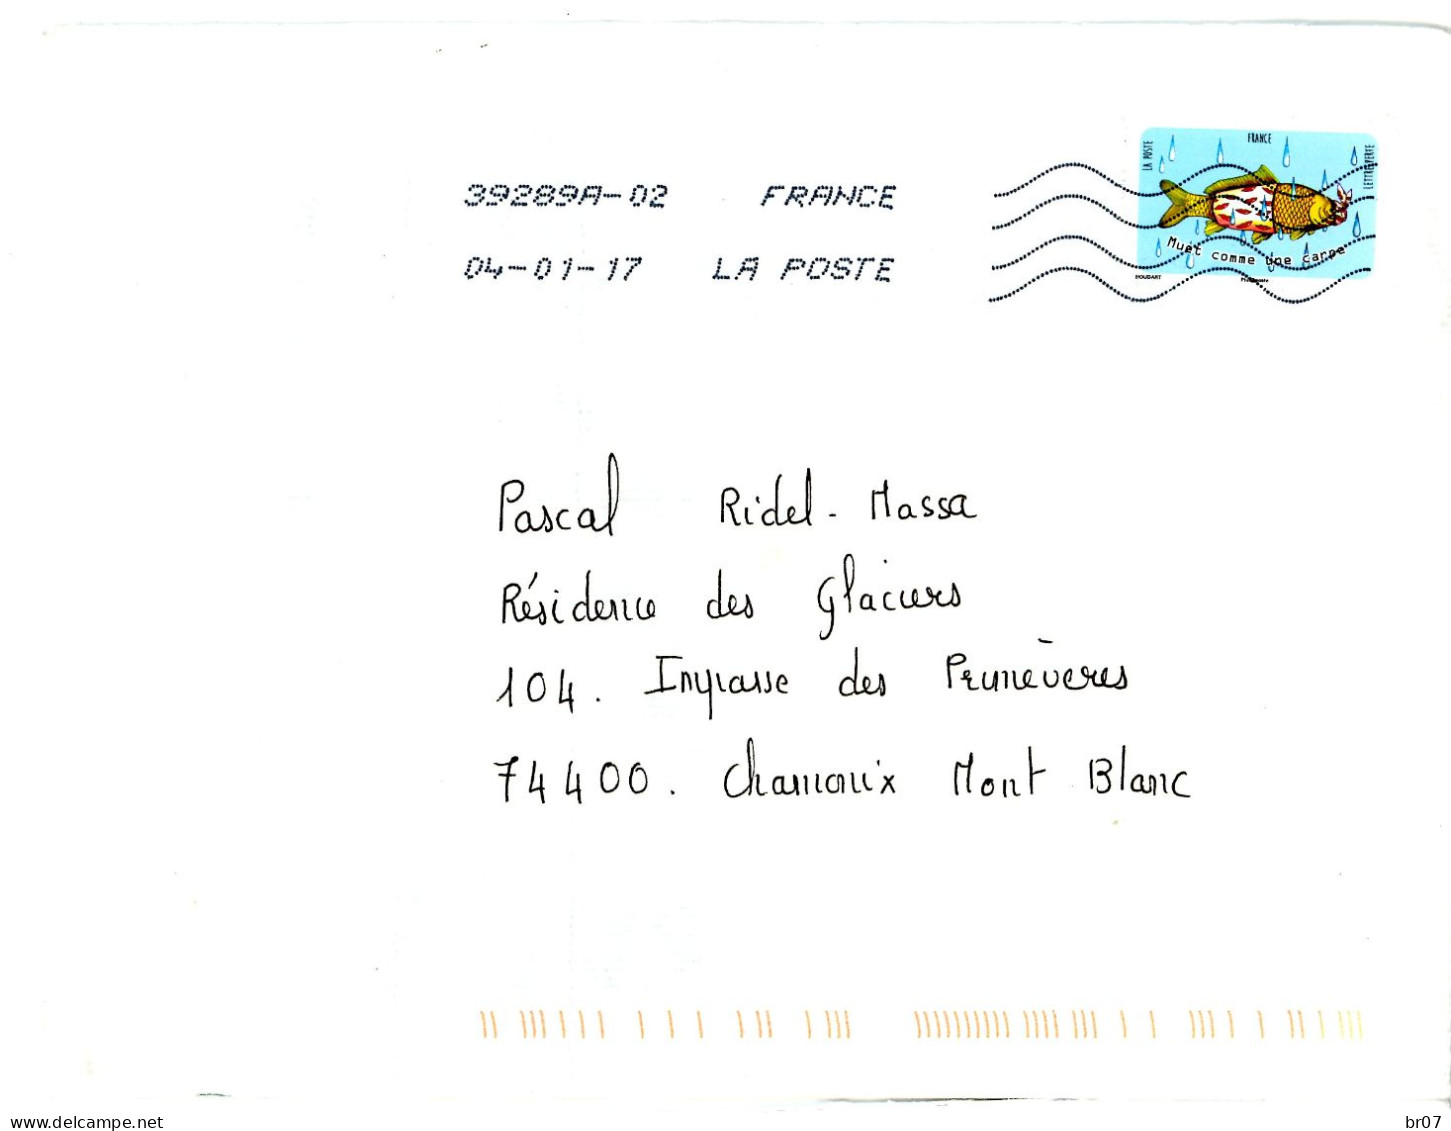 39289A-02 FRANCE
04-01-17 LA POSTE
LA POSTE
FRANCE
LETTRE VERTE
Muet comme une carpe
HOUDART
Pascal Ridel-Massa
Résidence des Glaciers
104. Impasse des Primevères
74400. Chamonix Mont Blanc
www.delcampe.net
br07